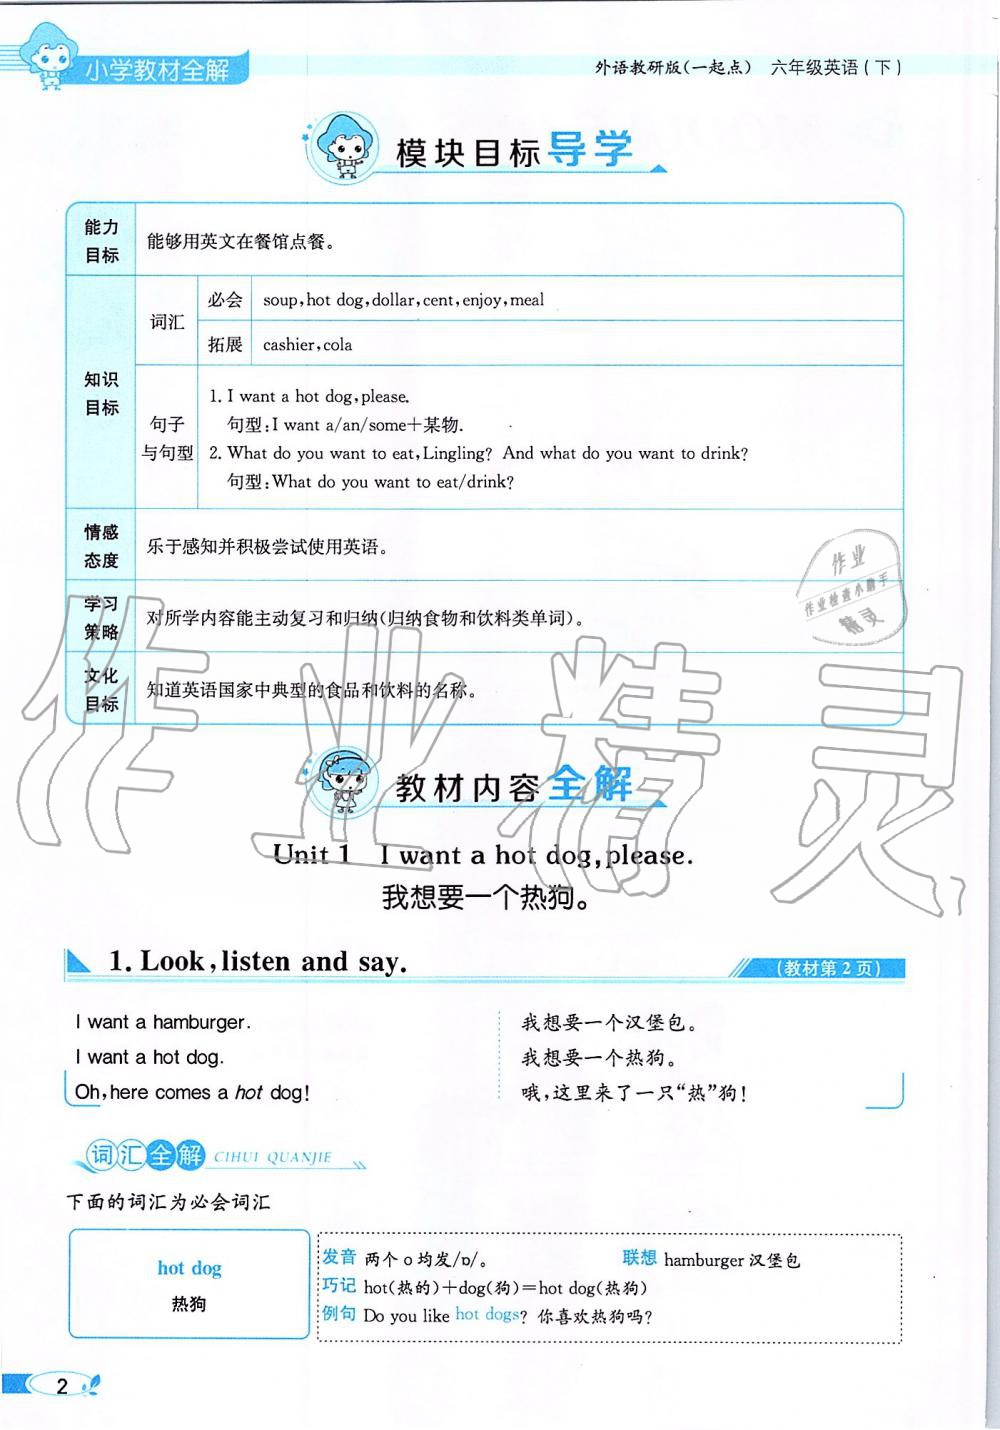 小学教材全解
外语教研版(一起点) 六年级英语(下)
模块目标导学
能力目标
能够用英文在餐馆点餐。
知识目标
词汇
必会
soup,hot dog,dollar,cent,enjoy,meal
拓展
cashier,cola
句子与句型
1. I want a hot dog,please.
句型:I want a/an/some+某物.
2. What do you want to eat,Lingling? And what do you want to drink?
句型:What do you want to eat/drink?
情感态度
乐于感知并积极尝试使用英语。
学习策略
对所学内容能主动复习和归纳(归纳食物和饮料类单词)。
文化目标
知道英语国家中典型的食品和饮料的名称。
作业
作业检查小助手
精灵
作业精灵
教材内容全解
Unit 1 I want a hot dog,please.
我想要一个热狗。
1. Look,listen and say.
(教材第2页)
I want a hamburger.
I want a hot dog.
Oh,here comes a hot dog!
我想要一个汉堡包。
我想要一个热狗。
哦,这里来了一只“热”狗!
词汇全解 CIHUI QUANJIE
下面的词汇为必会词汇
hot dog
热狗
发音 两个o均发/ɒ/。 联想 hamburger 汉堡包
巧记 hot(热的)+dog(狗)=hot dog(热狗)
例句 Do you like hot dogs? 你喜欢热狗吗?
2